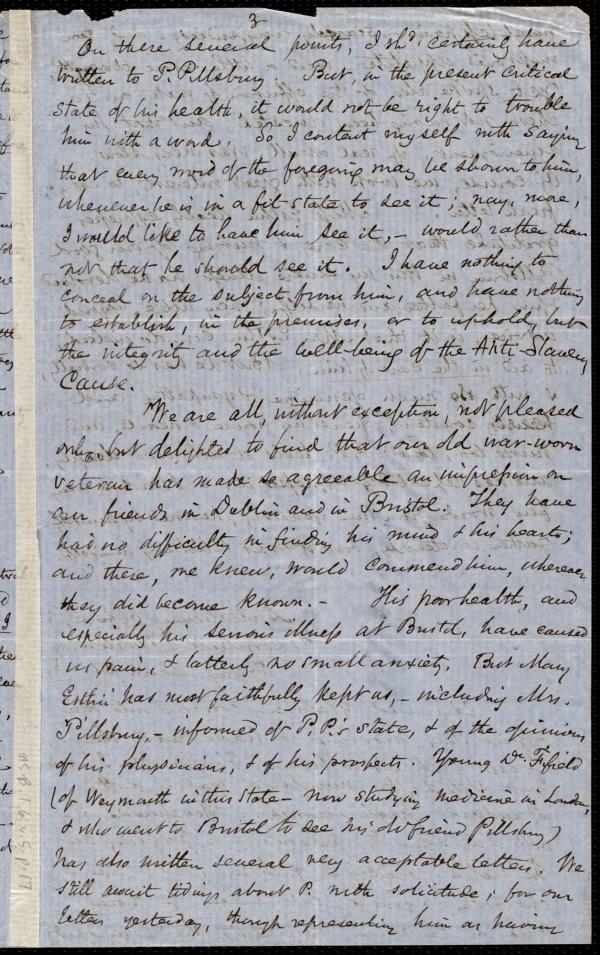 3
On these several points, I shd. certainly have
written to P. Pillsbury. But, in the present critical
state of his health, it would not be right to trouble
him with a word. So I content myself with saying
that every word of the foregoing may be shown to him,
whenever he is in a fit state to see it; nay, more,
I would like to have him see it, – would rather than
not that he should see it. I have nothing to
conceal on the subject from him, and have nothing
to establish, in the premises, or to uphold, but
the integrity and the well-being of the Anti-Slavery
Cause.
We are all, without exception, not pleased
only, but delighted to find that our old war-worn
veteran has made so agreeable an impression on
our friends in Dublin and in Bristol. They have
had no difficulty in finding his mind & his hearts;
and there, we knew, would commend him, wherever
they did become known. – His poor health, and
especially his serious illness at Bristol, have caused
us pain, & latterly no small anxiety. But Mary
Esthir has most faithfully kept us, – including Mrs.
Pillsbury, – informed of P. P.'s state, & of the opinions
of his physicians, & of his prospects. Young Dr. Fifield
(of Weymouth in this State – now studying medicine in London,
& who went to Bristol to see his old friend Pillsbury)
has also written several very acceptable letters. We
still await tidings about P. with solicitude; for our
letters yesterday, though representing him as having
MS B.1.6 v.5 p.17